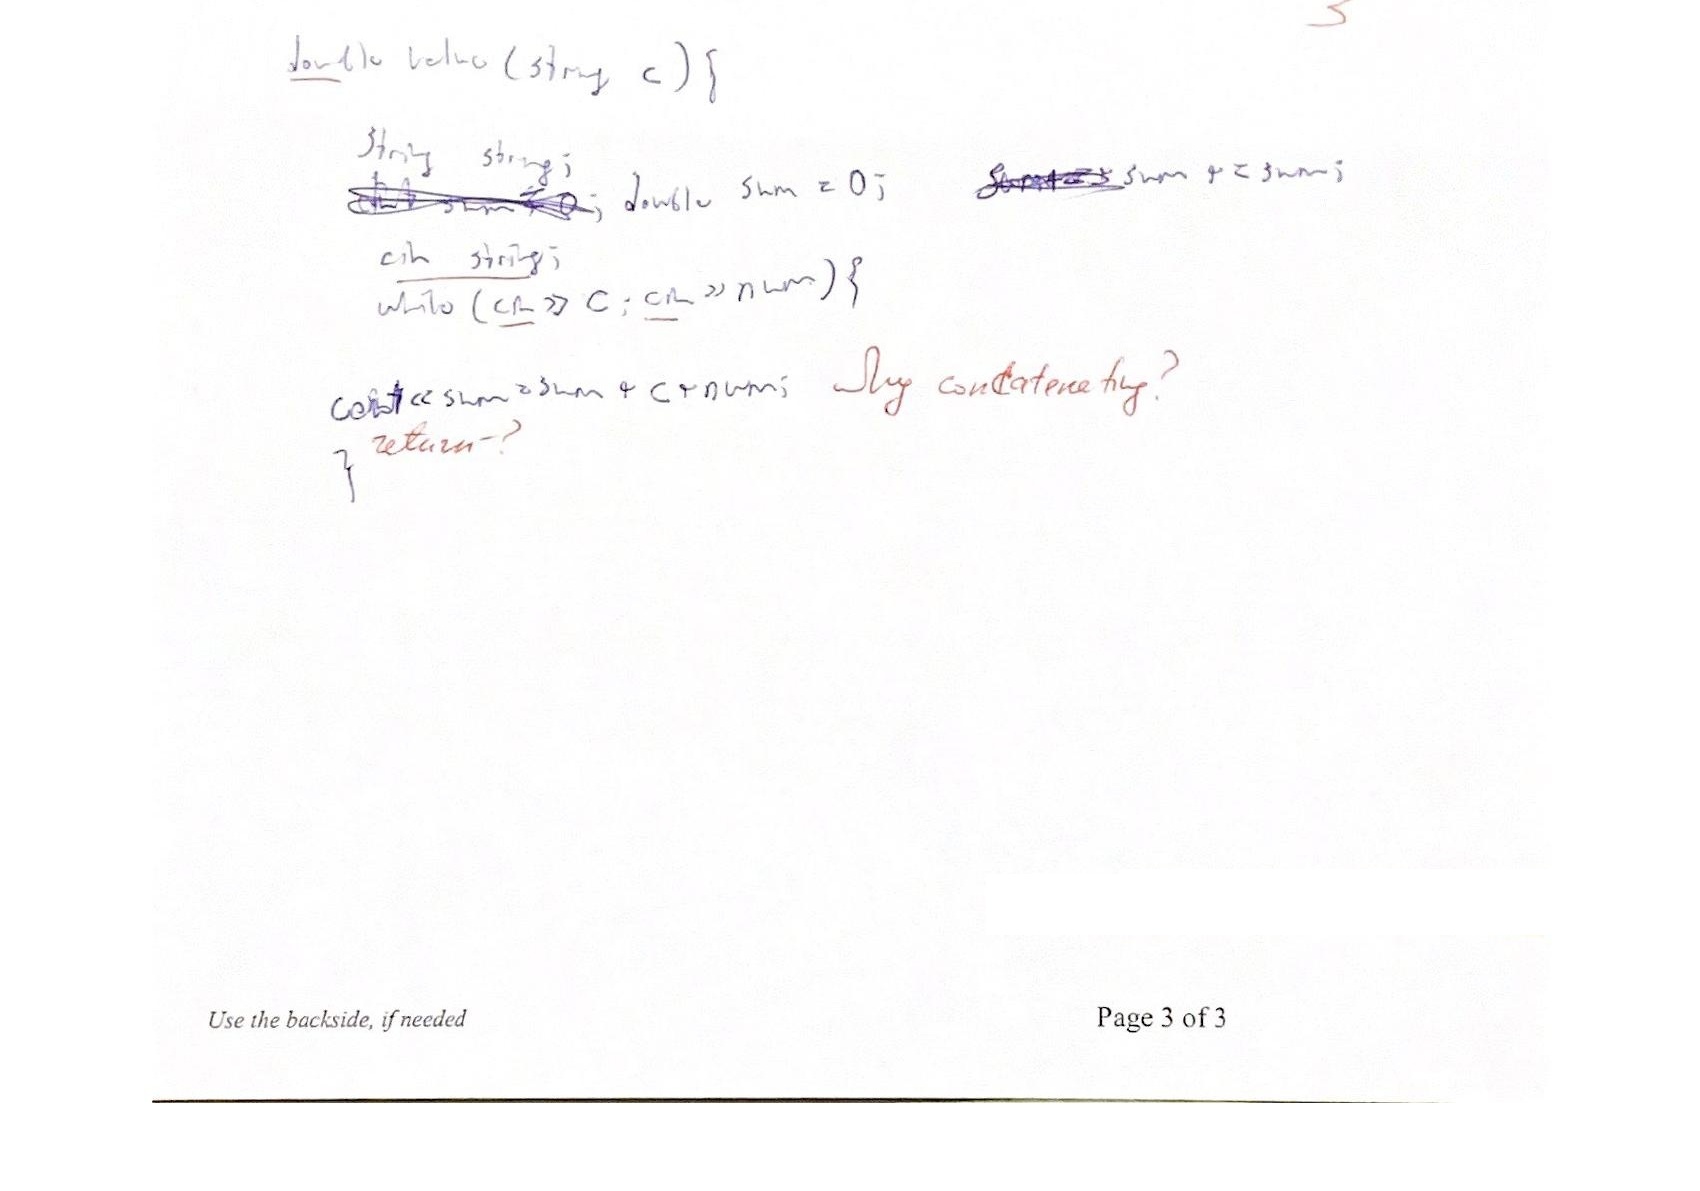 5
double value (string c) {
String string;
double sum = 0; sum += sum;
cin string;
while (cin >> c; cin >> num) {
cout << sum = sum + c + num; Why concatenating?
return-?
}
Use the backside, if needed
Page 3 of 3